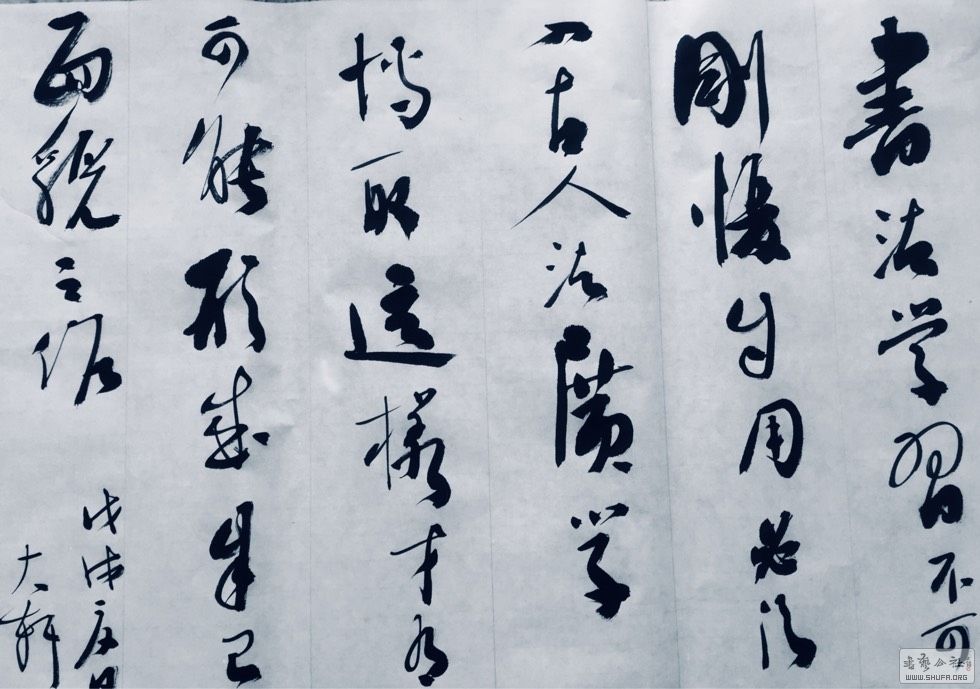 書法学習不可
剛愎自用必須
以古人法廣学
博取這樣才有
可能形成自己
面貌之作
戊戌夏日
大軒
書藝公社
WWW.SHUFA.ORG